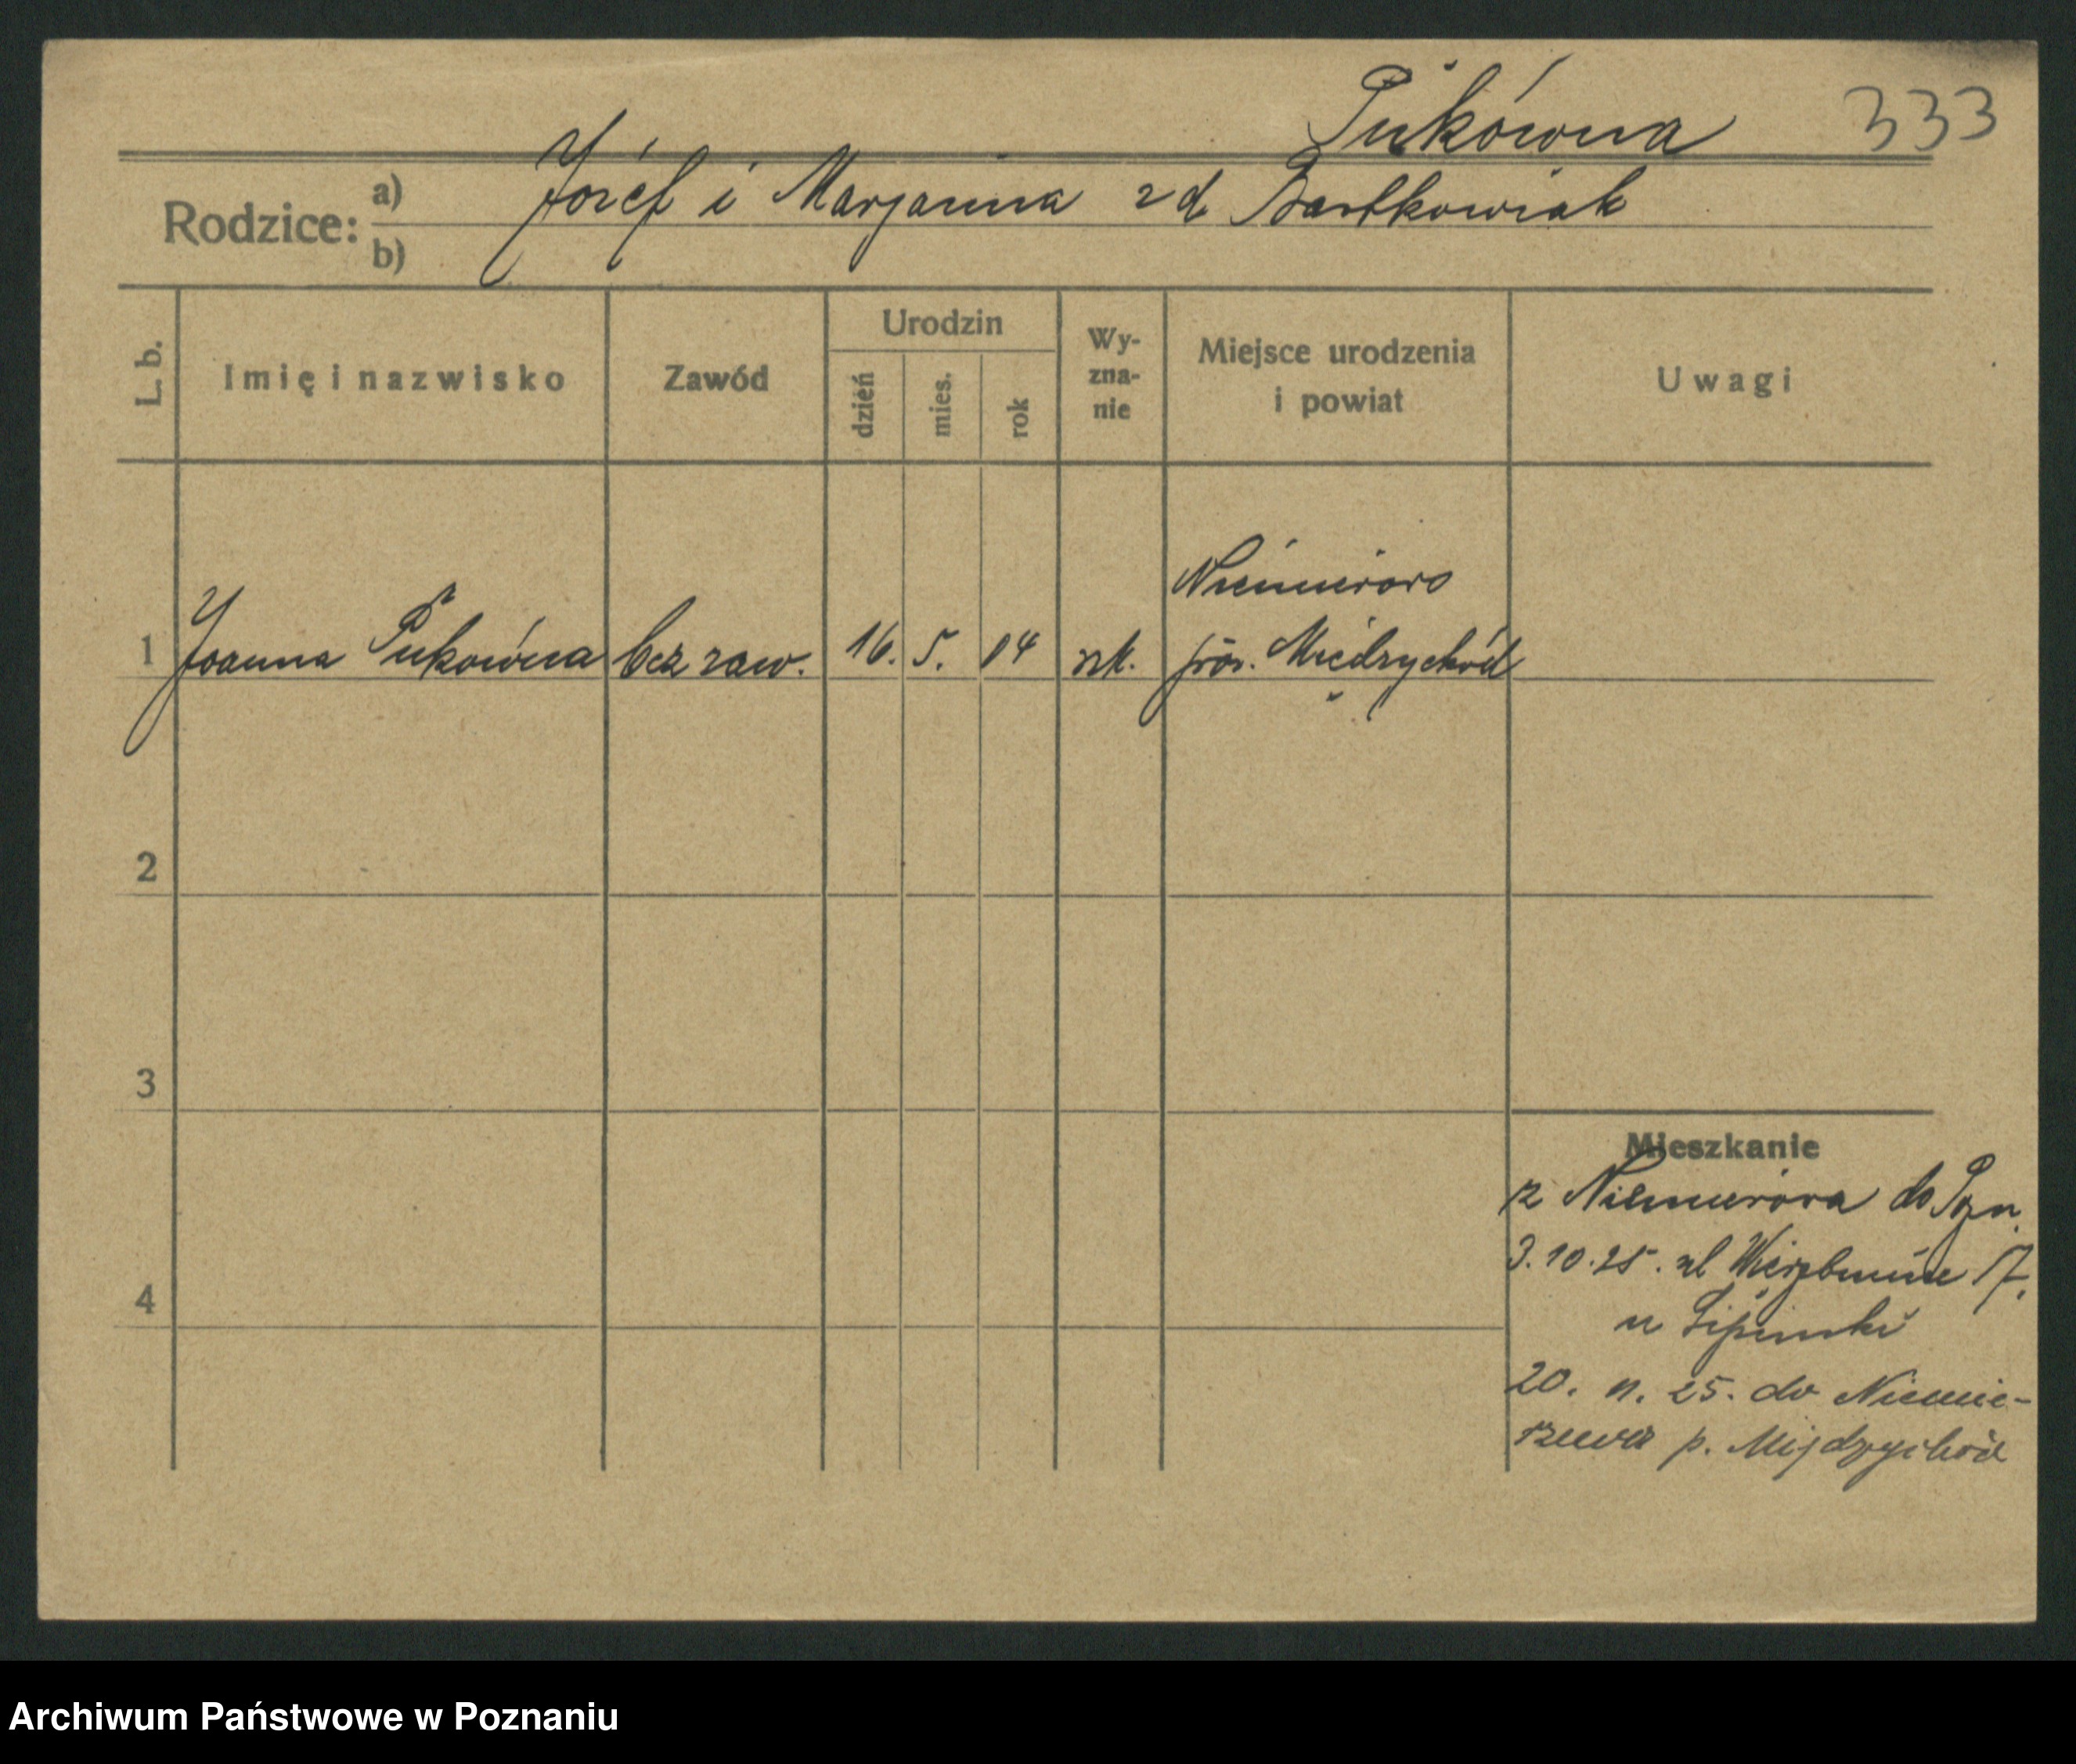 Pukówna 333
Rodzice: a) Józef i Marjanna zd Bartkowiak
b)
L. b. Imię i nazwisko Zawód Urodzin dzień mies. rok Wy-zna-nie Miejsce urodzenia i powiat Uwagi
Niemierowo
1 Joanna Pukówna bez zaw. 16. 5. 04 rk. pow. Międzychód
2
3
Mieszkanie
z Niemierowa do Pozn.
3.10.25. ul Wierzbiecice 17.
4
u Lipinski
20. 11. 25. do Niemie-
rzewa p. Międzychód
Archiwum Państwowe w Poznaniu